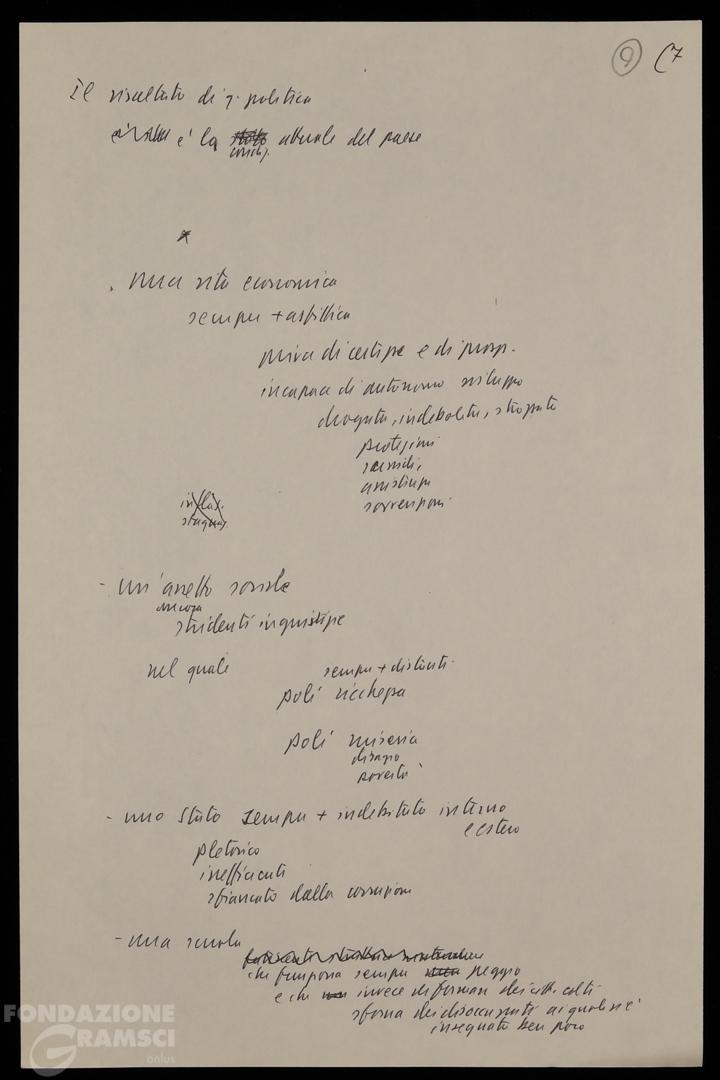 9 (7
Il risultato di q. politica
è la condiz. attuale del paese
*
. una vita economica
sempre + asfittica
priva di certezze e di prosp.
incapace di autonomo sviluppo
drogata, indebolita, strozzata
protezioni
sussidi,
assistenze
sovvenzioni
inflaz.
stagnaz.
- un'assetto sociale
ancora
stridenti ingiustizie
nel quale sempre + distanti
poli ricchezza
poli miseria
disagio
povertà
- uno Stato sempre + indebitato interno
e estero
pletorico
inefficiente
sfiancato dalla corruzione
- una scuola
che funziona sempre peggio
e che invece di formare dei citt. colti
sforna dei disoccupati ai quali si è
insegnato ben poco
FONDAZIONE
GRAMSCI
onlus